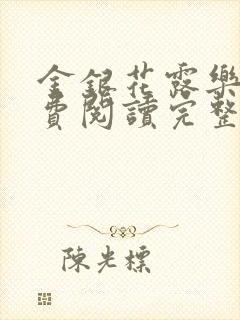 金銀花露樂
費閱讀完整
陳光標